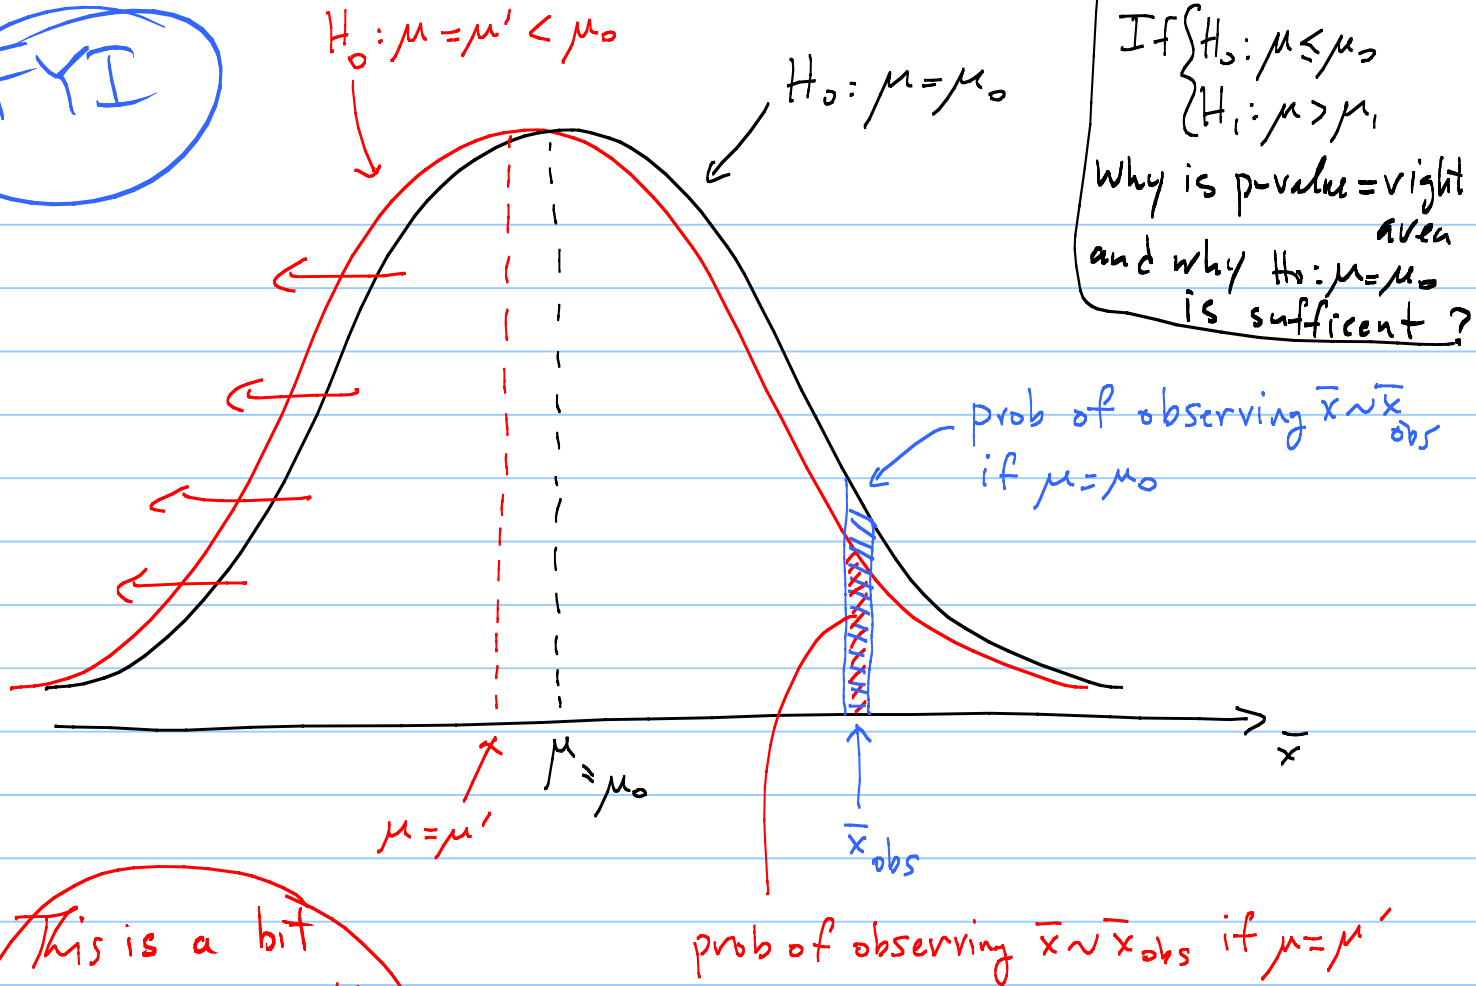 FYI
H₀: μ = μ' < μ₀
H₀: μ = μ₀
If { H₀: μ ≤ μ₀
{ H₁: μ > μ₁
Why is p-value = right
area
and why H₀: μ = μ₀
is sufficent ?
prob of observing x̄ ~ x̄obs
if μ = μ₀
x̄
μ = μ₀
μ = μ'
x̄obs
This is a bit
prob of observing x̄ ~ x̄obs if μ = μ'